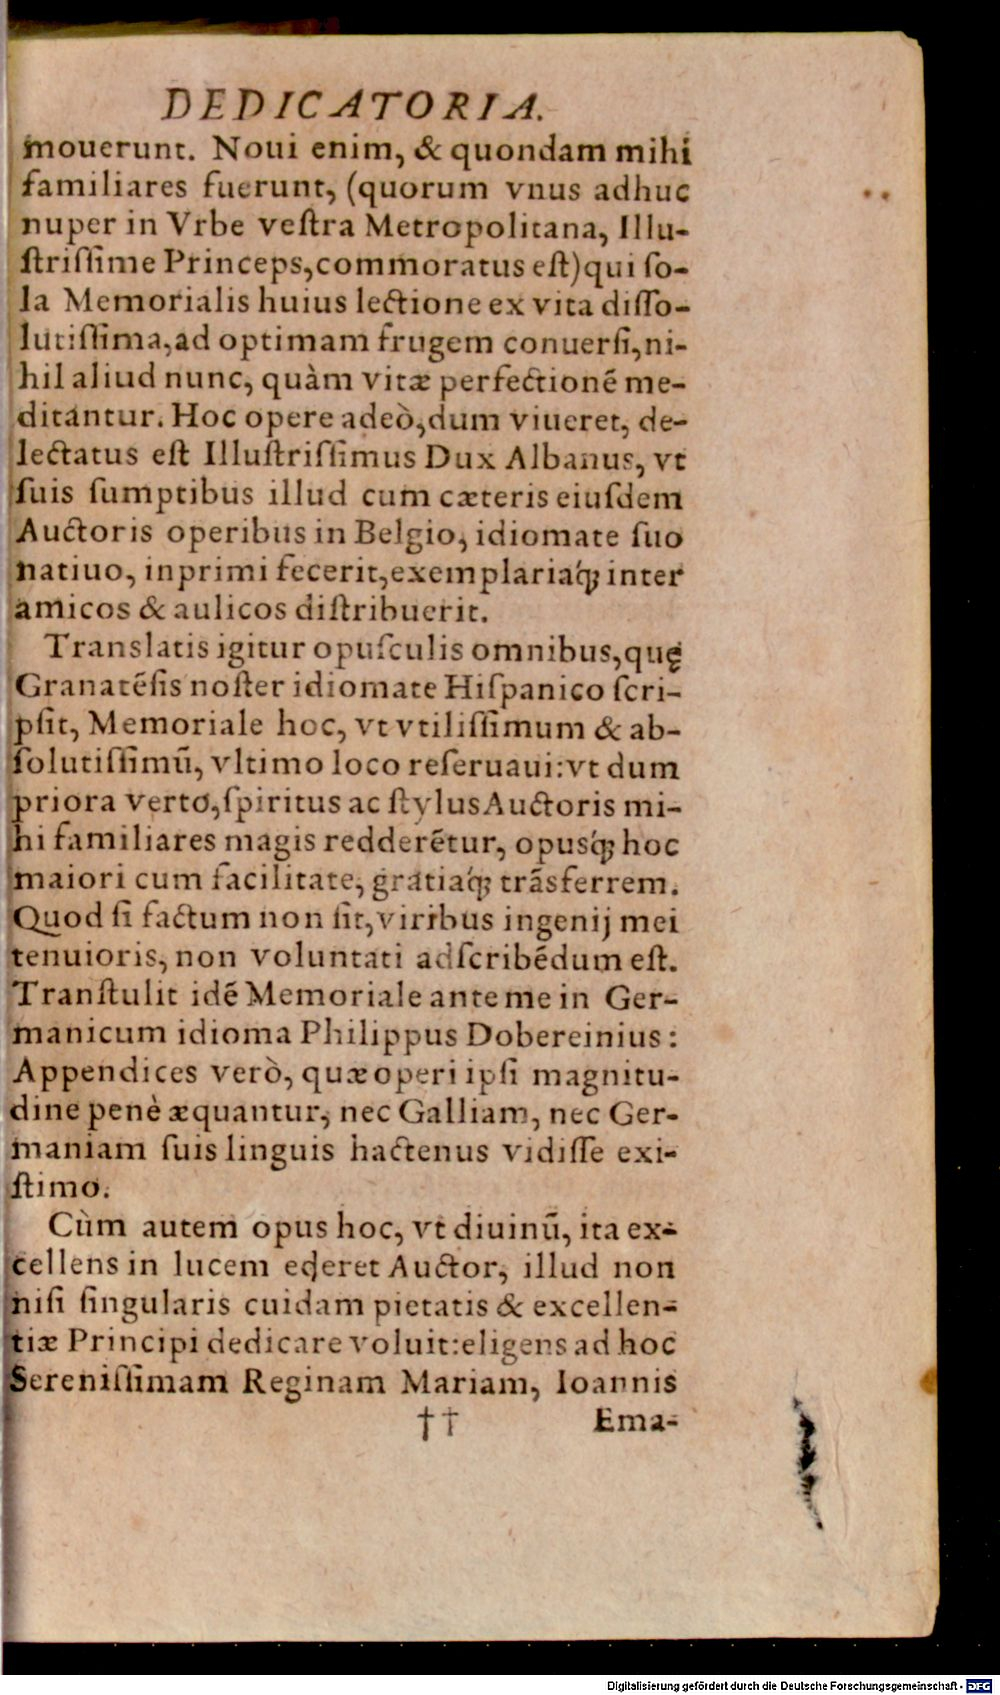 DEDICATORIA.
mouerunt. Noui enim, & quondam mihi
familiares fuerunt, (quorum vnus adhuc
nuper in Vrbe veſtra Metropolitana, Illu-
ſtriſſime Princeps,commoratus eſt)qui ſo-
la Memorialis huius lectione ex vita diſſo-
lutiſſima,ad optimam frugem conuerſi,ni-
hil aliud nunc, quàm vitæ perfectionē me-
ditantur. Hoc opere adeò,dum viueret, de-
lectatus eſt Illuſtriſſimus Dux Albanus, vt
ſuis ſumptibus illud cum cæteris eiuſdem
Auctoris operibus in Belgio, idiomate ſuo
natiuo, inprimi fecerit,exemplariaq́ꝫ inter
amicos & aulicos diſtribuerit.
Translatis igitur opuſculis omnibus,quę
Granatēſis noſter idiomate Hiſpanico ſcri-
pſit, Memoriale hoc, vt vtiliſſimum & ab-
ſolutiſſimū, vltimo loco reſeruaui:vt dum
priora verto,ſpiritus ac ſtylus Auctoris mi-
hi familiares magis redderētur, opusq́ꝫ hoc
maiori cum facilitate, gratiaq́ꝫ trāsferrem.
Quod ſi factum non ſit,viribus ingenij mei
tenuioris, non voluntati adſcribēdum eſt.
Tranſtulit idē Memoriale ante me in Ger-
manicum idioma Philippus Dobereinius:
Appendices verò, quæ operi ipſi magnitu-
dine penè æquantur, nec Galliam, nec Ger-
maniam ſuis linguis hactenus vidiſſe exi-
ſtimo.
Cùm autem opus hoc, vt diuinū, ita ex-
cellens in lucem ederet Auctor, illud non
niſi ſingularis cuidam pietatis & excellen-
tiæ Principi dedicare voluit:eligens ad hoc
Sereniſſimam Reginam Mariam, Ioannis
†† Ema-
Digitalisierung gefördert durch die Deutsche Forschungsgemeinschaft - DFG